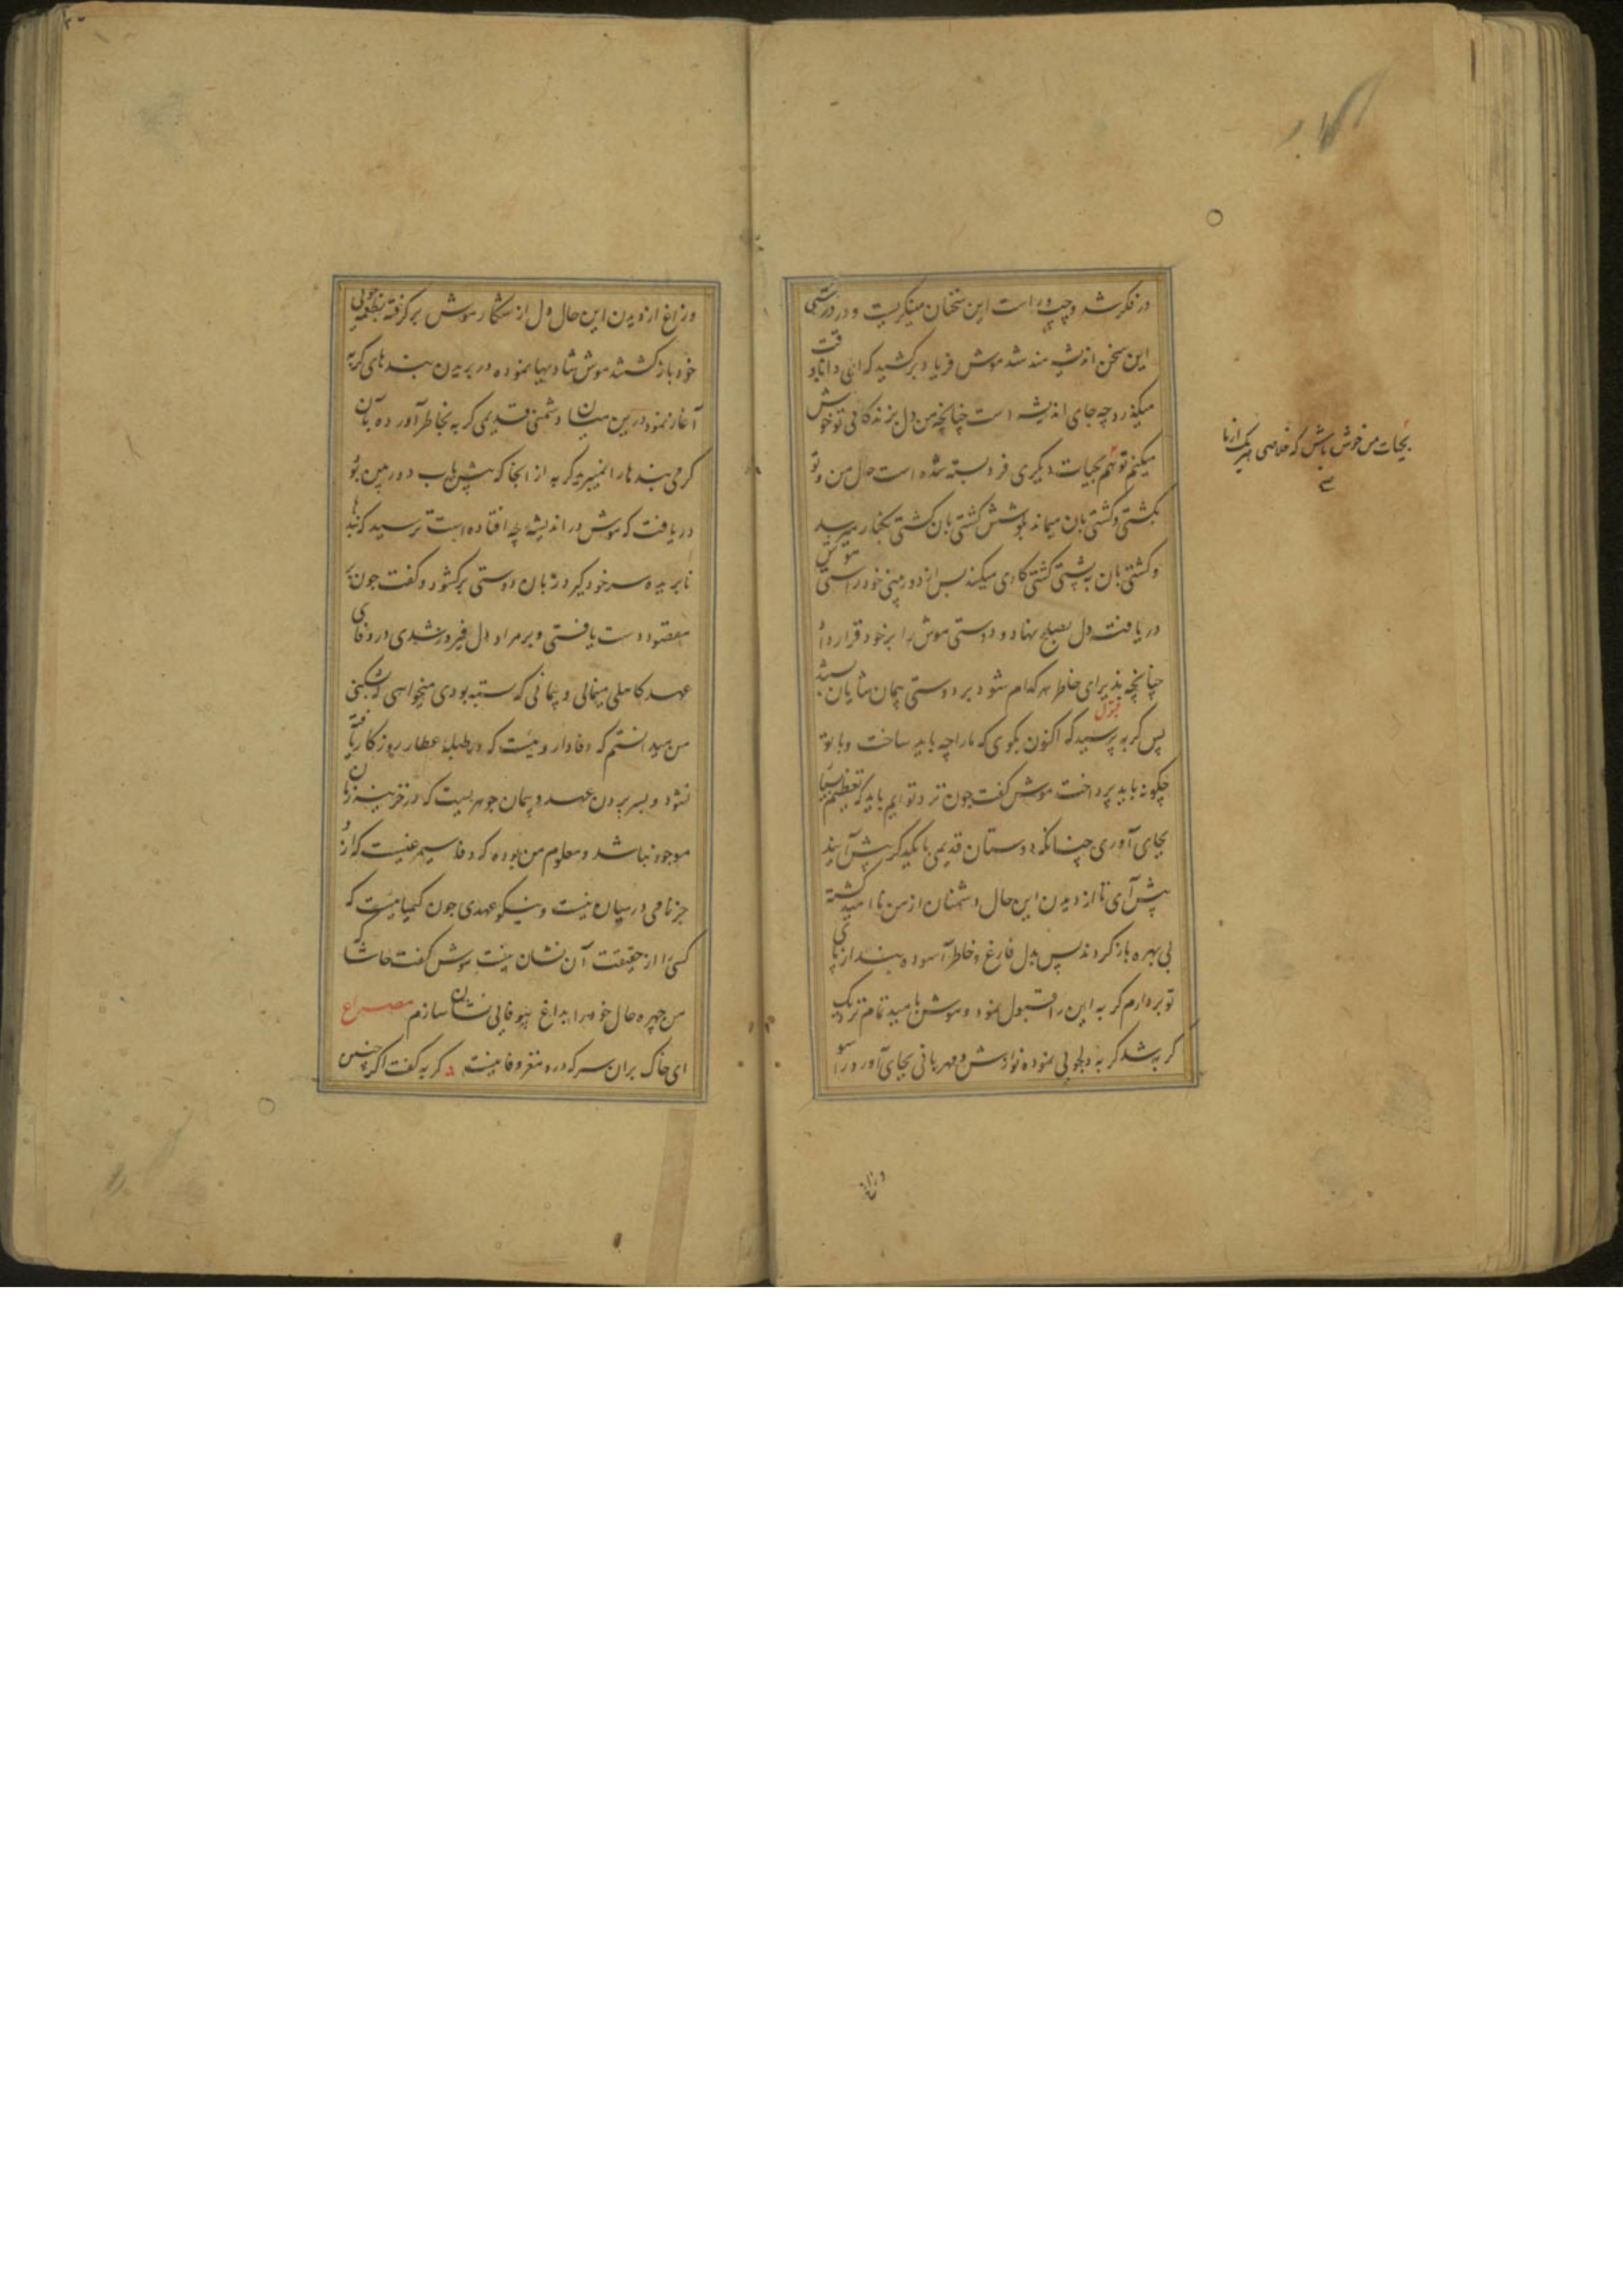 در فکر شد و چپ و راست این سخنان مینگریست و در درستی
این سخن اندیشه مند شد موش فریاد برکشید که ای دانا وقت
میگذرد چه جای اندیشه است چنانچه من دل بزندگانی تو خوش
میکنم تو هم بحیات دیگری فر و بسته شده است حال من و تو
بکشتی و کشتی بان میماند بکوشش کشتی بان کشتی بکنار میرسد
و کشتی بان به پشتی کشتی کاری میکند پس از دوربینی خود راستی موش
دریافت دل بصلح نهاد و دوستی موش را بر خود قرار داد
چنانچه پذیرای خاطر هر کدام شود بر دوستی پیمان شایان بسته شد
پس گربه پرسید که اکنون بگوی که مارا چه باید ساخت و با تو
چگونه باید پرداخت موش گفت چون نزد تو ایم باید که تعظیم بسیار
بجای آوری چنانکه دوستان قدیمی با یکدیگر پیش آیند
پیش آی تا از دیدن این حال دشمنان از من نا امید گشته
بی بهره باز گردند پس بدل فارغ و خاطر آسوده بند از پای
تو بردارم گربه این را قبول نمود و موش بامید تمام نزدیک
گربه شد گربه دلجویی نموده نوازش و مهربانی بجای آورد را سو
بحیات من خوش باش که خلاصی هر یک از ما
وزاغ
و زاغ از دیدن این حال دل از شکار موش بر گرفته بطعمه جویی
خود باز گشتند موش شادیها نموده در بریدن بندهای گربه
آغاز نمود درین میان دشمنی قدیمی گربه بخاطر آورده بآن
گرمی بندها را نمیبرید گربه از انجا که پیش یاب دوربین بود
دریافت که موش در اندیشه چه افتاده است ترسید که بندها
نا بریده سر خود گیرد زبان دوستی برکشود و گفت چون بر
مقصود دست یافتی و بر مراد دل فیروز شدی در وفای
عهد کاهلی مینمایی و پیمانی که بسته بودی میخواهی که بشکنی
من میدانستم که وفا دارویست که در طبله عطار روزگار یافته
نشود و بسر بردن عهد و پیمان جوهریست که در خزینه زمان
موجود نباشد و معلوم من بوده که وفا سیمرغیست که ازو
جز نامی در میان نیست و نیکو عهدی چون کیمیاییست که
کسی را از حقیقت آن نشان نیست موش گفت حاشا که
من چهره حال خود را بداغ بیوفایی نشان سازم مصراع
ای خاک بران سر که درو مغز وفا نیست گربه گفت اگر چنین